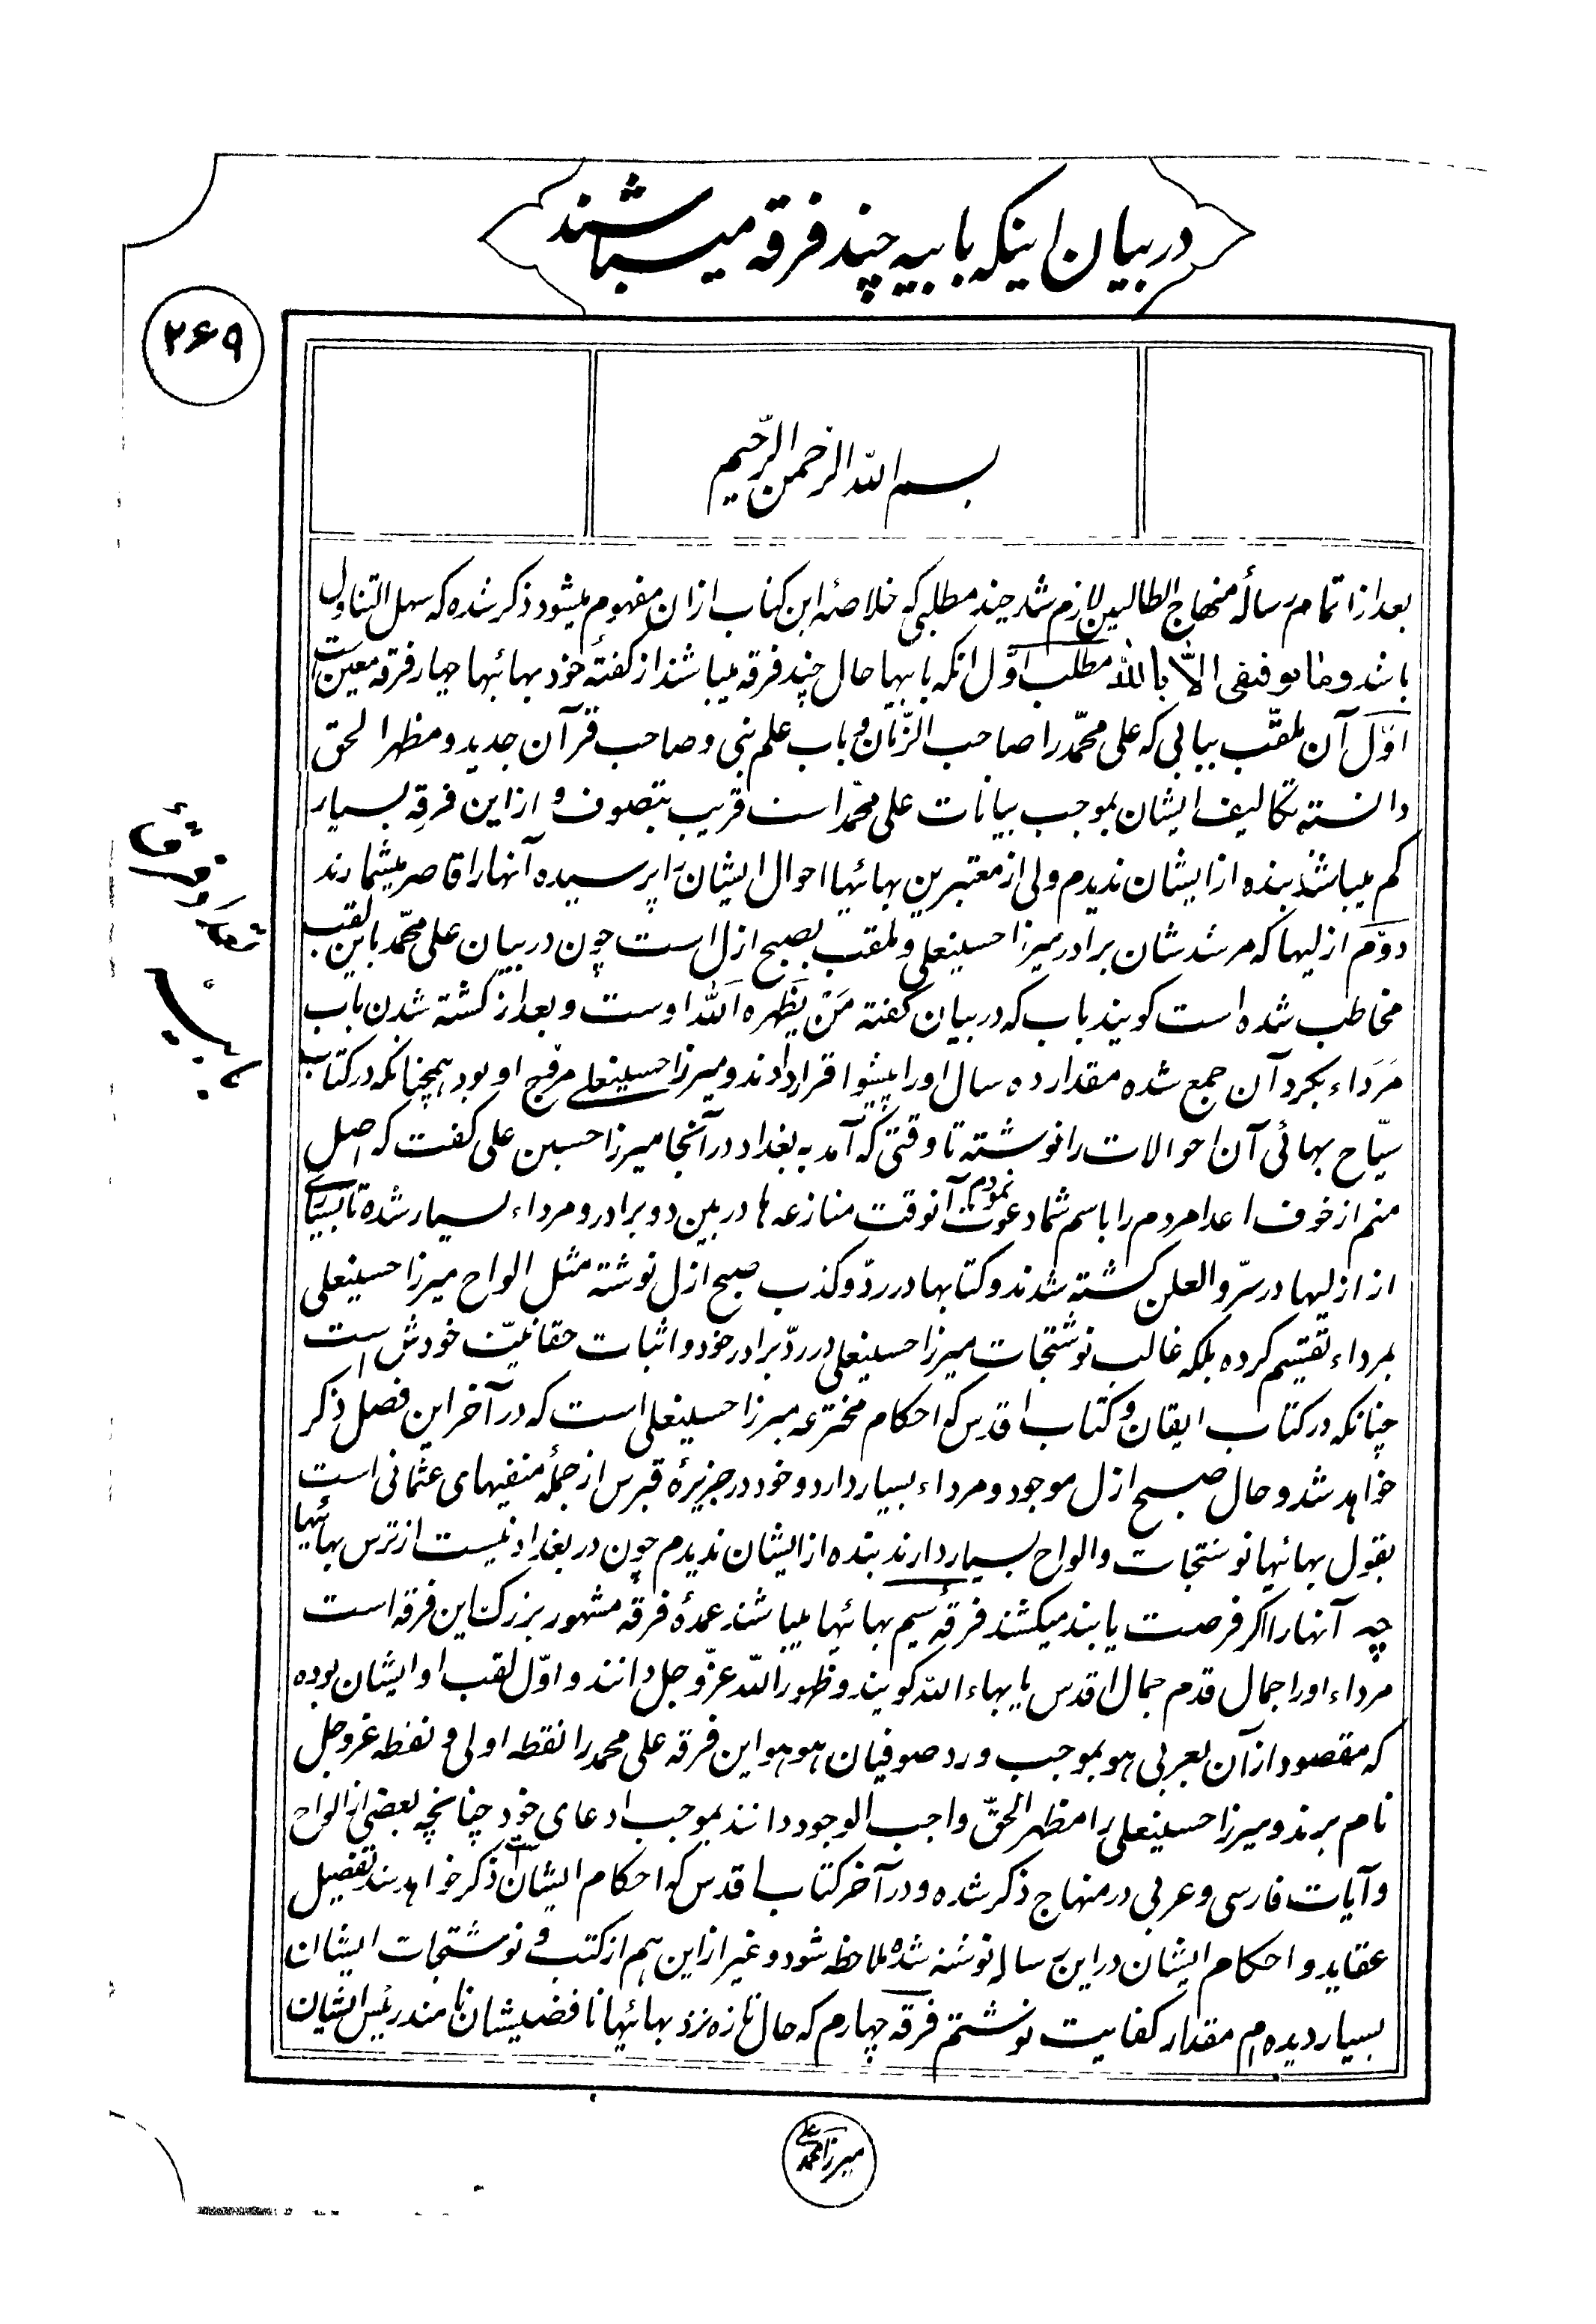 در بیان اینکه بابیه چند فرقه میباشند
۲۶۹
بسم الله الرحمن الرحیم
بعد از اتمام رسالهٔ منهاج الطالبین لازم شد چند مطلبی که خلاصهٔ این کتاب از ان مفهوم میشود ذکر شده که سهل التناول
باشد و ما توفیقی الّا بالله مطلب اوّل انکه بابیها حال چند فرقه میباشند از گفتهٔ خود بهائیها چهار فرقه معین است
اوّل آن ملقّب ببیانی که علی محمّد را صاحب الزّمان و باب علم نبی و صاحب قرآن جدید و مظهر الحق
دانسته تکالیف ایشان بموجب بیانات علی محمّد است قریب بتصوف و از این فرقه بسیار
کم میباشند بنده از ایشان ندیدم ولی از معتبرین بهائیها احوال ایشان را پرسیده آنها را قاصر میشمارند
دوّم ازلیها که مرشدشان برادر میرزا حسینعلی و ملقب بصبح ازل است چون در بیان علی محمّد باین لقب
مخاطب شده است گویند باب که در بیان گفته مَنْ یَظهره الله اوست و بعد از کشته شدن باب
مَرَداء بگرد آن جمع شده مقدار ده سال او را پیشوا قرار دادند و میرزا حسینعلی مروّج او بود همچنانکه در کتاب
سیّاح بهائی آن احوالات را نوشته تا وقتی که آمد به بغداد در آنجا میرزا حسین علی گفت که اصل
منم از خوف اعدا مردم را باسم شما دعوت نمودم آنوقت منازعه ها در بین دو برادر و مرداء بسیار شده تا بسیاری
از ازلیها در سرّ والعلن کشته شدند و کتابها در ردّ و کذب صبح ازل نوشته مثل الواح میرزا حسینعلی
بمرداء تقسیم کرده بلکه غالب نوشتجات میرزا حسینعلی در ردّ برادر خود و اثبات حقانیّت خودش است
چنانکه در کتاب ایقان و کتاب اقدس که احکام مخترعه میرزا حسینعلی است که در آخر این فصل ذکر
خواهد شد و حال صبح ازل موجود و مرداء بسیار دارد و خود در جزیرهٔ قبرس از جملهٔ منفیهای عثمانی است
بقول بهائیها نوشتجات و الواح بسیار دارند بنده از ایشان ندیدم چون در بغداد نیست از ترس بهائیها
چه آنها را اگر فرصت یابند میکشند فرقهٔ سیم بهائیها میباشند عمدهٔ فرقه مشهور بزرگ این فرقه است
مرداء او را جمال قدم جمال اقدس یا بهاء الله گویند و ظهور الله عزّ و جل دانند و اوّل لقب او ایشان بوده
که مقصود از آن بعربی هو بموجب ورد صوفیان هو هو این فرقه علی محمد را نقطه اولی و نقطه عز و جل
نام برند و میرزا حسینعلی را مظهر الحقّ واجب الوجود دانند بموجب ادعای خود چنانچه بعضی از الواح
و آیات فارسی و عربی در منهاج ذکر شده و در آخر کتاب اقدس که احکام ایشان است ذکر خواهد شد تفصیل
عقاید و احکام ایشان در این رساله نوشته شده ملاحظه شود و غیر از این هم از کتب و نوشتجات ایشان
بسیار دیده ام مقدار کفایت نوشتم فرقه چهارم که حال تازه نزد بهائیها ناقضیشان نامند رئیس ایشان
تعداد فرقهای
بابیه
میرزا محمد علی